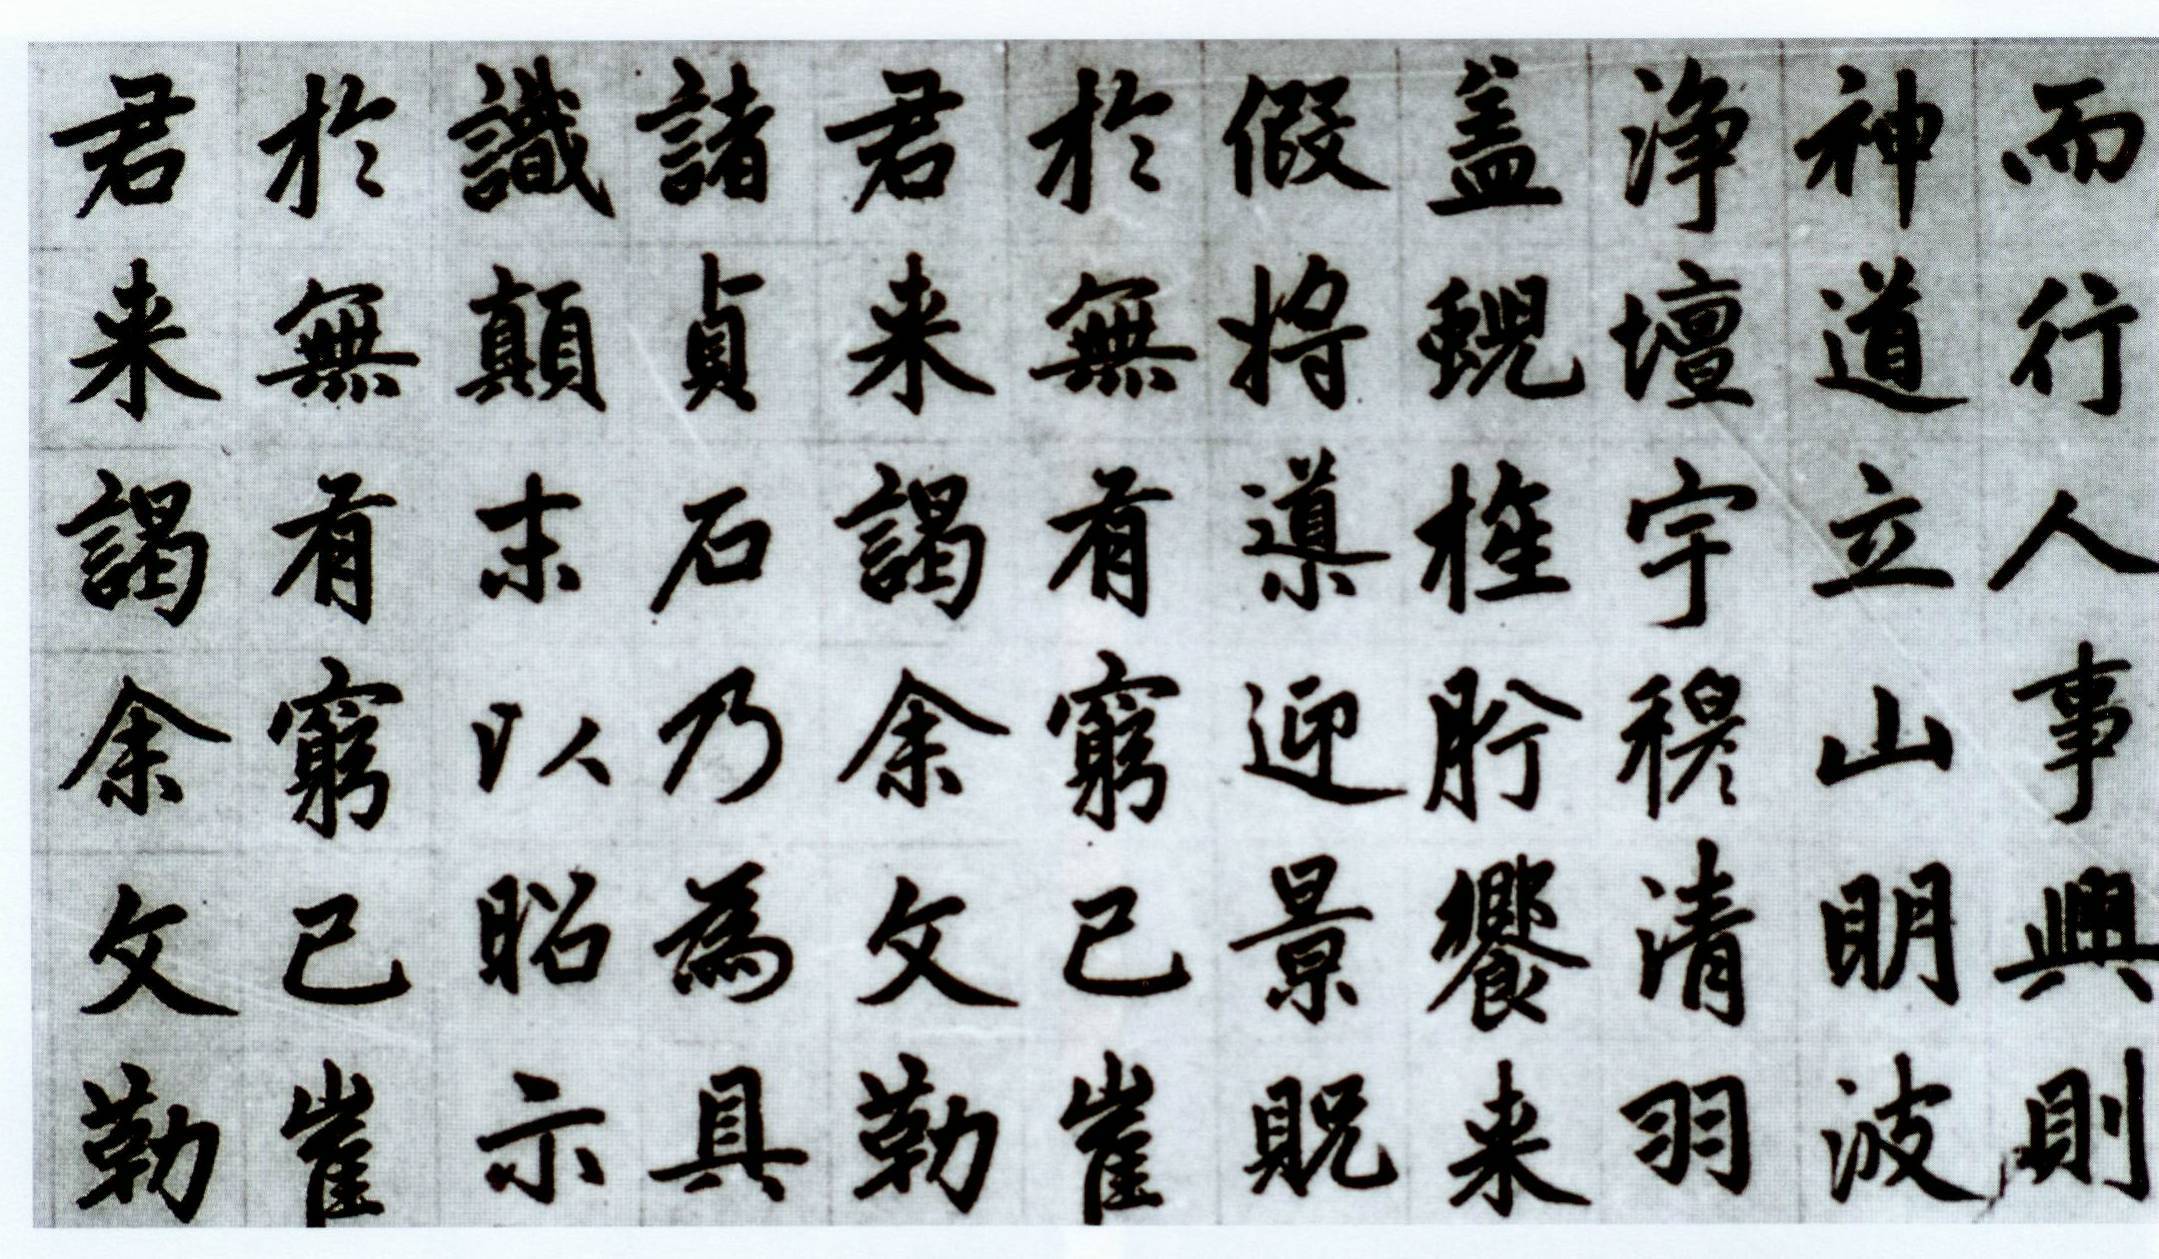 而行人事興則
神道立山明波
浄壇宇穆清羽
盖蜺旌肹饗来
假将導迎景貺
於無有窮已崔
君来謁余文勒
諸貞石乃為具
識顛末以昭示
於無有窮已崔
君来謁余文勒